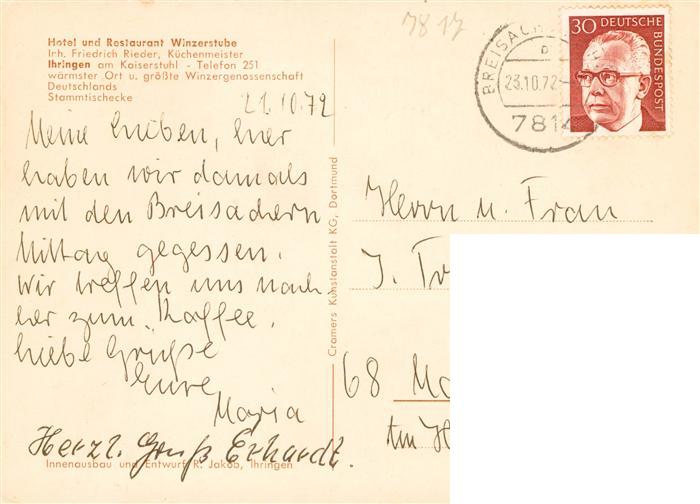 Hotel und Restaurant Winzerstube
Irh. Friedrich Rieder, Küchenmeister
Ihringen am Kaiserstuhl - Telefon 251
wärmster Ort u. größte Winzergenossenschaft
Deutschlands
Stammtischecke
21.10.72
Meine Lieben, hier
haben wir damals
mit den Breisachern
Mittag gegessen.
Wir treffen uns nach
her zum Kaffee.
Liebe Grüße
Eure
Maria
Herzl. Gruß Erhardt.
Innenausbau und Entwurf R. Jakob, Ihringen
Cramers Kunstanstalt KG, Dortmund
7817
BREISACH
23.10.72
7814
30 DEUTSCHE
BUNDESPOST
Herrn u. Frau
J.
68
Am